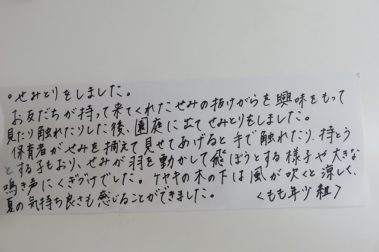 ○せみとりをしました。
お友だちが持って来てくれたせみの抜けがらを興味をもって
見たり触れたりした後、園庭に出てせみとりをしました。
保育者がせみを捕えて見せてあげると手で触れたり、持とう
とする子もおり、せみが羽を動かして飛ぼうとする様子や大きな
鳴き声にくぎづけでした。ケヤキの木の下は風が吹くと涼しく、
夏の気持ち良さも感じることができました。 〈もも年少組〉